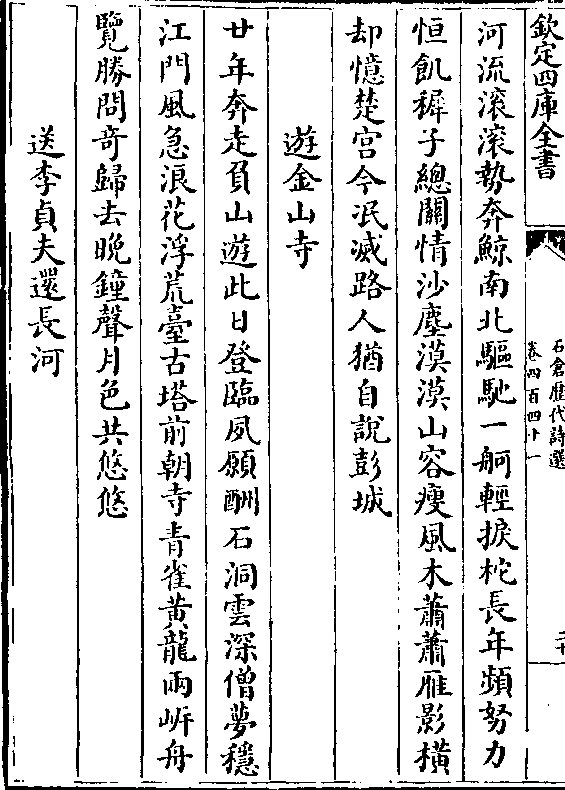 欽定四庫全書
石倉歷代詩選
卷四百四十一
二十
河流滚滚勢奔鯨南北驅馳一舸輕捩柁長年頻努力
恒飢穉子總關情沙塵漠漠山容瘦風木蕭蕭雁影橫
却憶楚宫今泯滅路人猶自説彭城
遊金山寺
廿年奔走負山遊此日登臨夙願酬石洞雲深僧夢穩
江門風急浪花浮荒臺古塔前朝寺青雀黄龍兩岍舟
覽勝問奇歸去晩鐘聲月色共悠悠
送李貞夫還長河